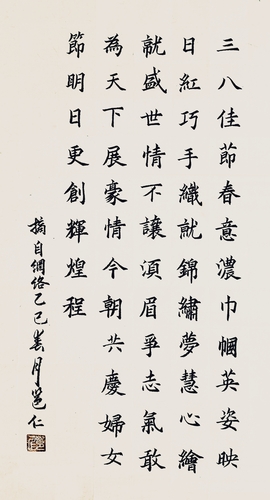 三八佳節春意濃巾幗英姿映
日紅巧手織就錦繡夢慧心繪
就盛世情不讓須眉爭志氣敢
為天下展豪情今朝共慶婦女
節明日更創輝煌程
摘自網絡乙巳春月邕仁